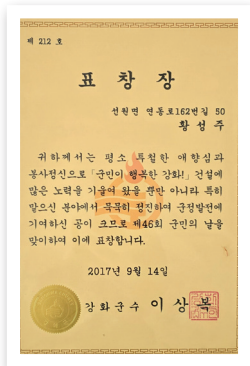 제 212 호
표 창 장
선원면 연동로162번길 50
황 성 주
귀하께서는 평소 특철한 애향심과
봉사정신으로 「군민이 행복한 강화!」 건설에
많은 노력을 기울여 왔을 뿐만 아니라 특히
맡으신 분야에서 묵묵히 정진하여 군정발전에
기여하신 공이 크므로 제46회 군민의 날을
맞이하여 이에 표창합니다.
2017년 9월 14일
강화군수 이 상 복